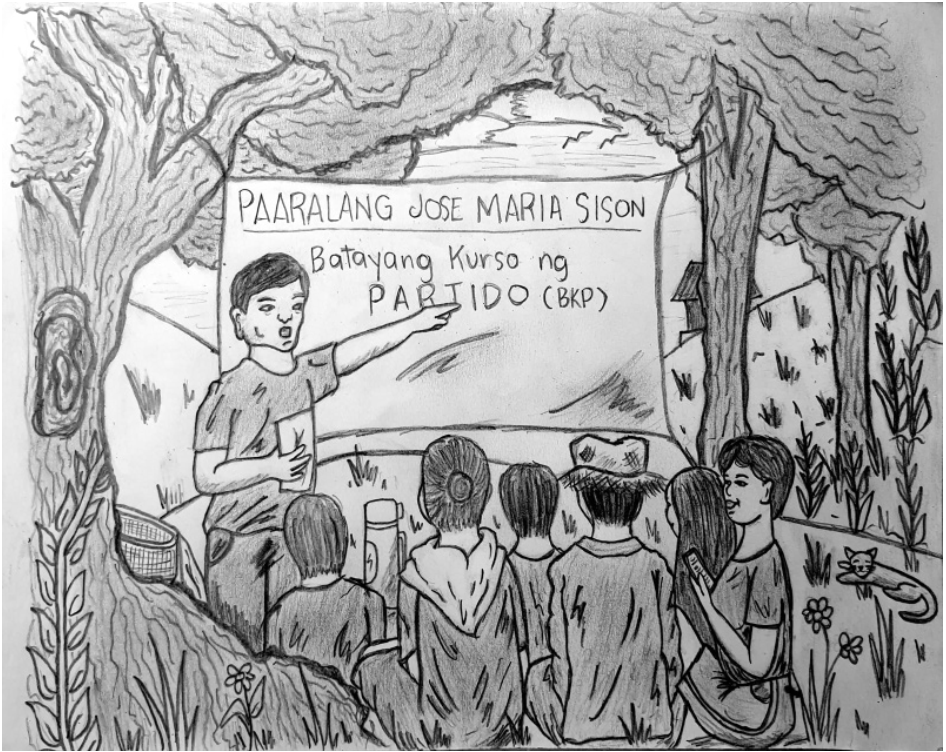 PAARALANG JOSE MARIA SISON
Batayang Kurso ng
PARTIDO (BKP)